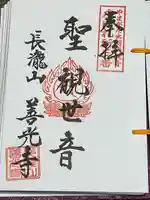 奉拝
聖観世音
長瀧山
善光寺